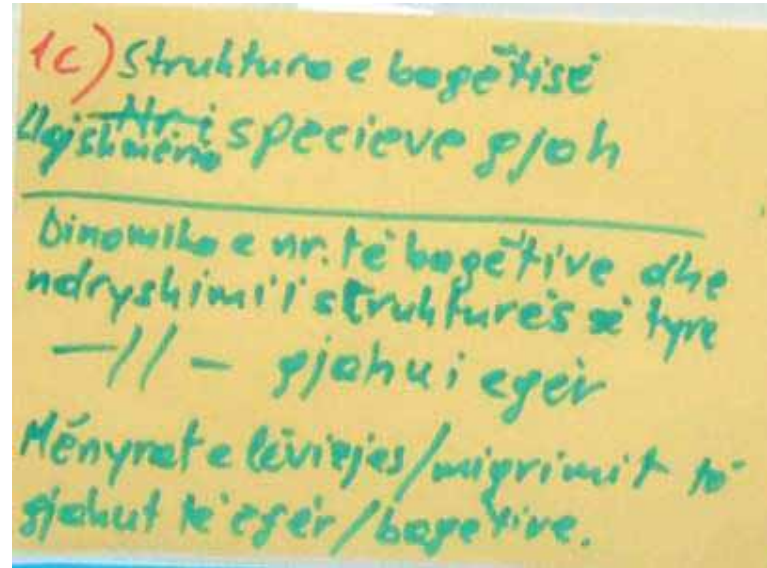 1c) Struktura e bagëtisë
Llojshmëria specieve gjah
Dinamika e nr. të bagëtive dhe
ndryshimi i strukturës së tyre
—//— gjahu i egër
Mënyrat e lëvizjes/migrimit të
gjahut të egër/bagëtive.